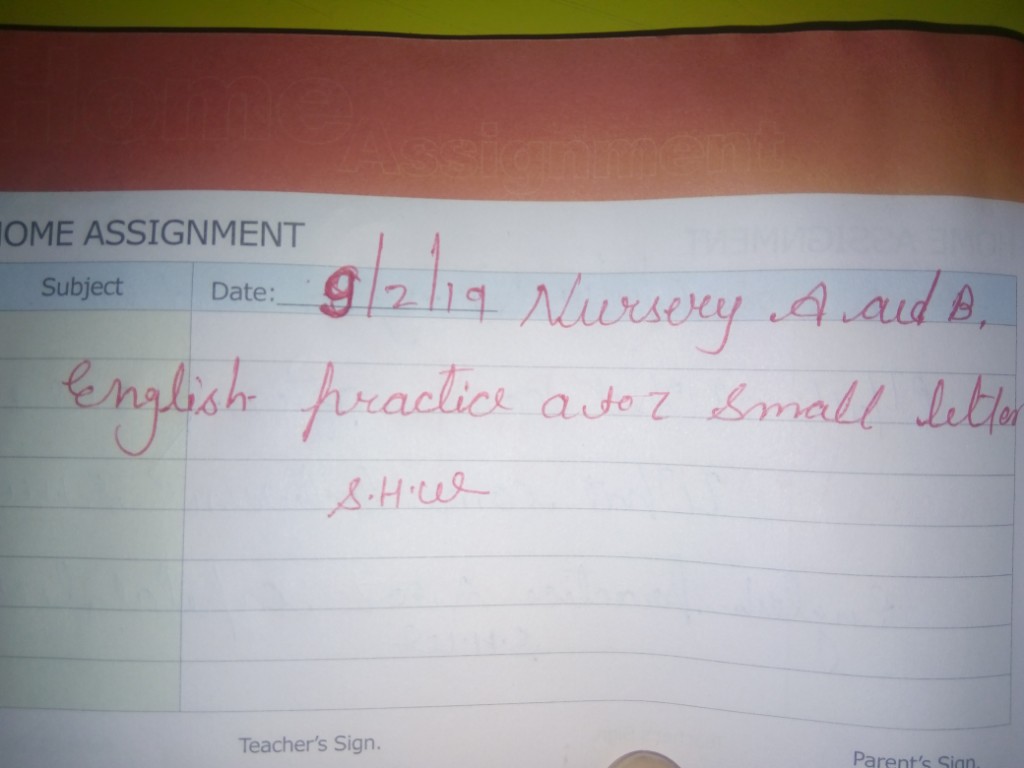 Home
Assignment
HOME ASSIGNMENT
Subject Date: 9/2/19 Nursery A and B.
English practice a to z small letter
S.H.W
Teacher's Sign.
Parent's Sign.